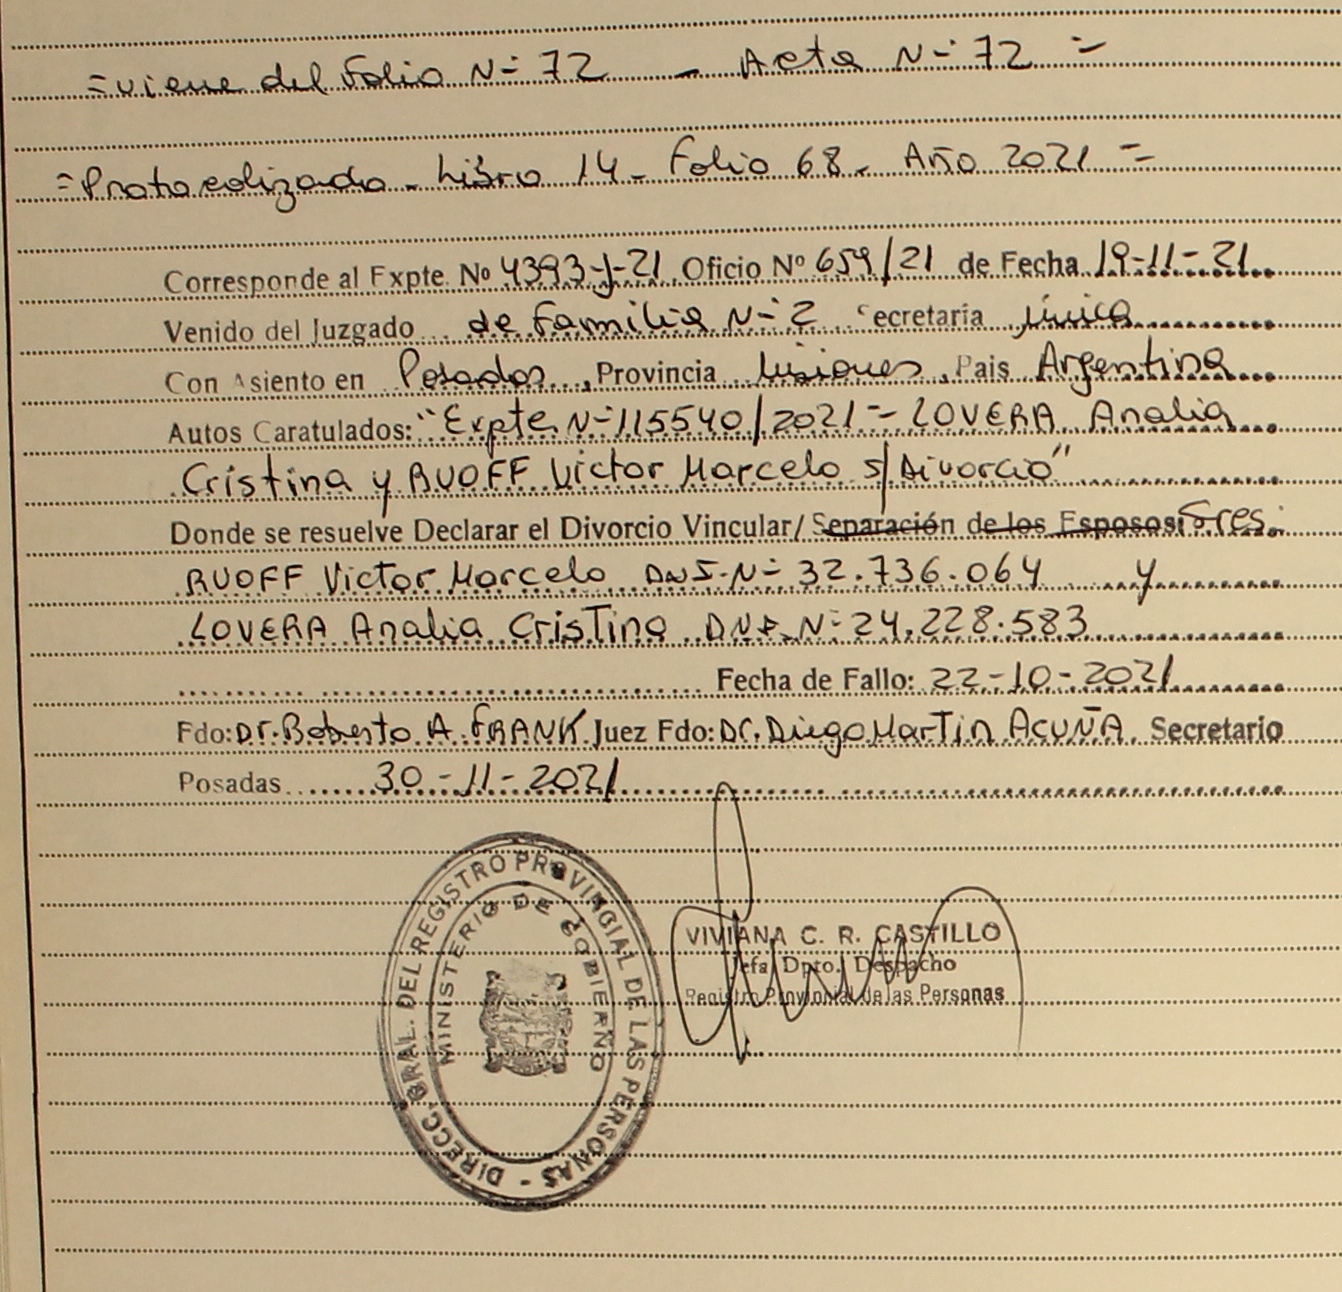 = viene del Folio N= 72 - Acta N= 72 =
= Protocolizado - Libro 14 - Folio 68 - Año 2021 =
Corresponde al Expte. Nº 4393-J-21 Oficio Nº 659/21 de Fecha 19-11-21
Venido del Juzgado de Familia N= 2 Secretaría Única
Con Asiento en Posadas, Provincia Misiones, País Argentina
Autos Caratulados: "Expte N= 115540/2021 - LOVERA Analia
Cristina y RUOFF Victor Marcelo s/ Divorcio"
Donde se resuelve Declarar el Divorcio Vincular/ Separación de los Esposos: Sres.
RUOFF Victor Marcelo DNI. N= 32.736.064 y
LOVERA Analia Cristina DNI. N= 24.228.583
Fecha de Fallo: 22-10-2021
Fdo: Dr. Roberto A. FRANK Juez Fdo: Dr. Diego Martin ACUÑA. Secretario
Posadas 30-11-2021
DIRECC. GRAL. DEL REGISTRO PROVINCIAL DE LAS PERSONAS -
MINISTERIO DE GOBIERNO
VIVIANA C. R. CASTILLO
Jefa Dpto. Despacho
Registro Provincial de las Personas